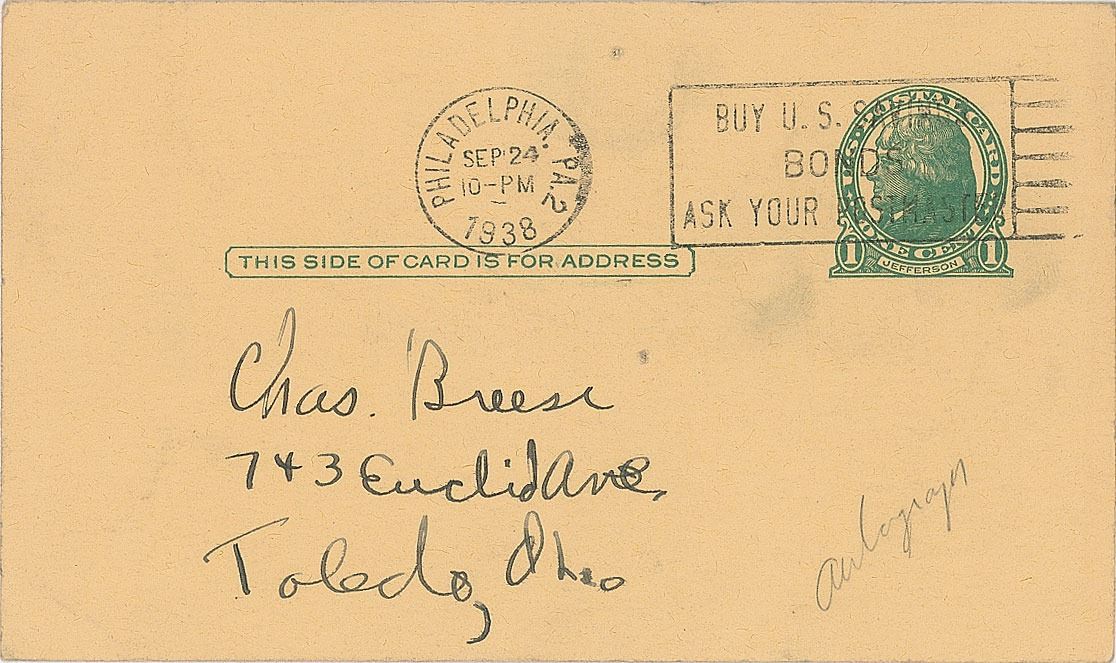 PHILADELPHIA, PA. 2
SEP 24
10-PM
1938
BUY U. S. SAVINGS
BONDS
ASK YOUR POSTMASTER
U.S. POSTAL CARD
ONE CENT
1 JEFFERSON 1
THIS SIDE OF CARD IS FOR ADDRESS
Chas. Breese
743 Euclid Ave,
Toledo, Ohio